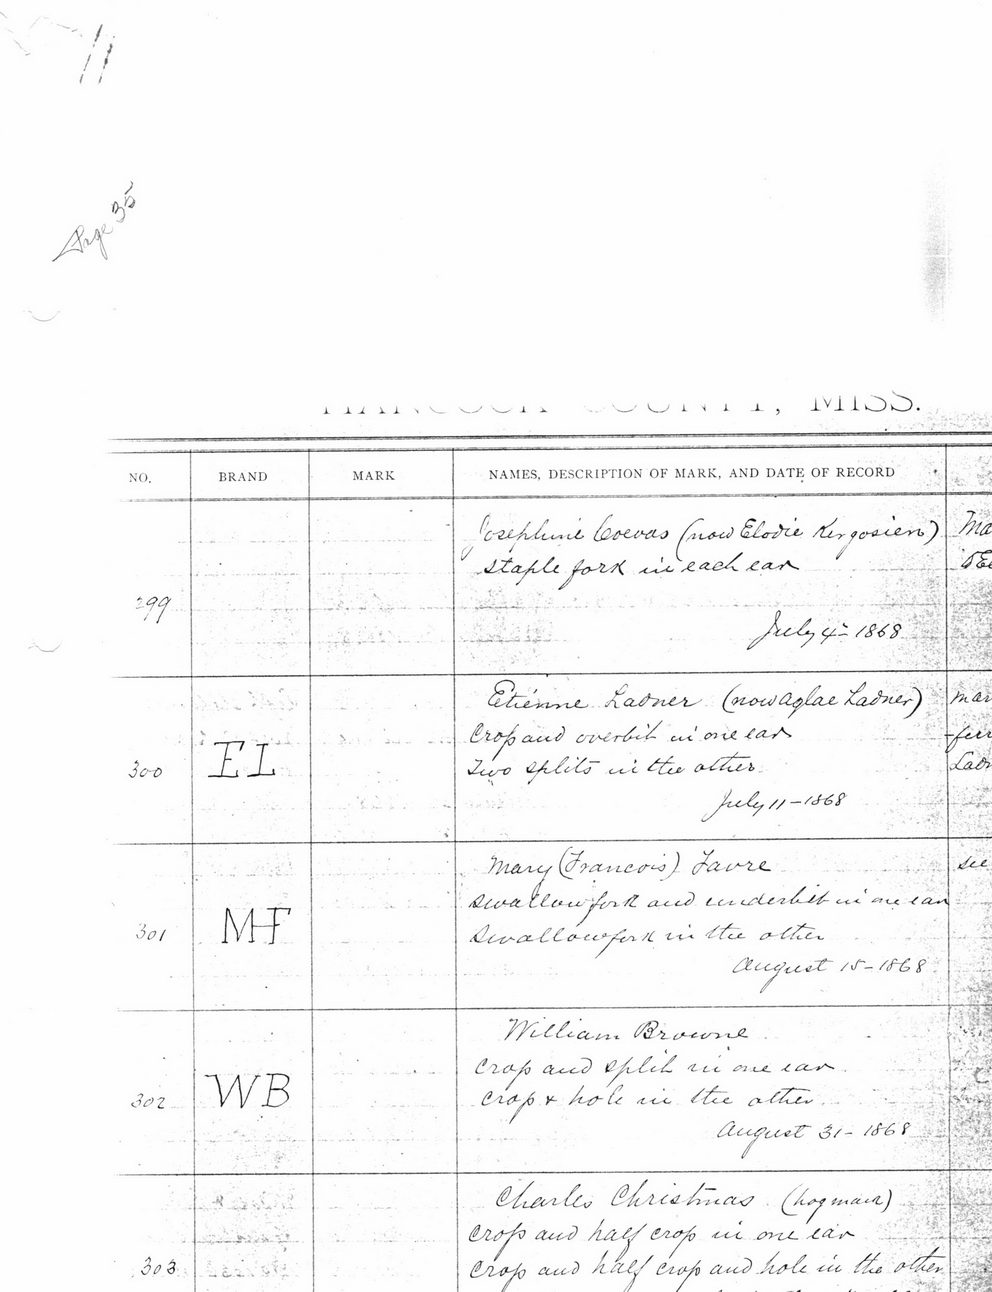 11
Page 35
HANCOCK COUNTY, MISS.
NO. BRAND MARK NAMES, DESCRIPTION OF MARK, AND DATE OF RECORD
Josephine Coevas (now Elodie Kergosien) Ma
staple fork in each ear
299
July 4- 1868
Etiénne Ladner (now Aglae Ladner) mar
Crop and overbit in one ear
300 EL Two splits in the other Ladn
July 11-1868
Mary (Francois) Favre see
swallowfork and underbit in one ear
301 MF Swallowfork in the other
August 15-1868
William Browne
Crop and split in one ear
302 WB crop & hole in the other
August 31-1868
Charles Christmas (hogman)
Crop and half crop in one ear
303 Crop and half crop and hole in the other